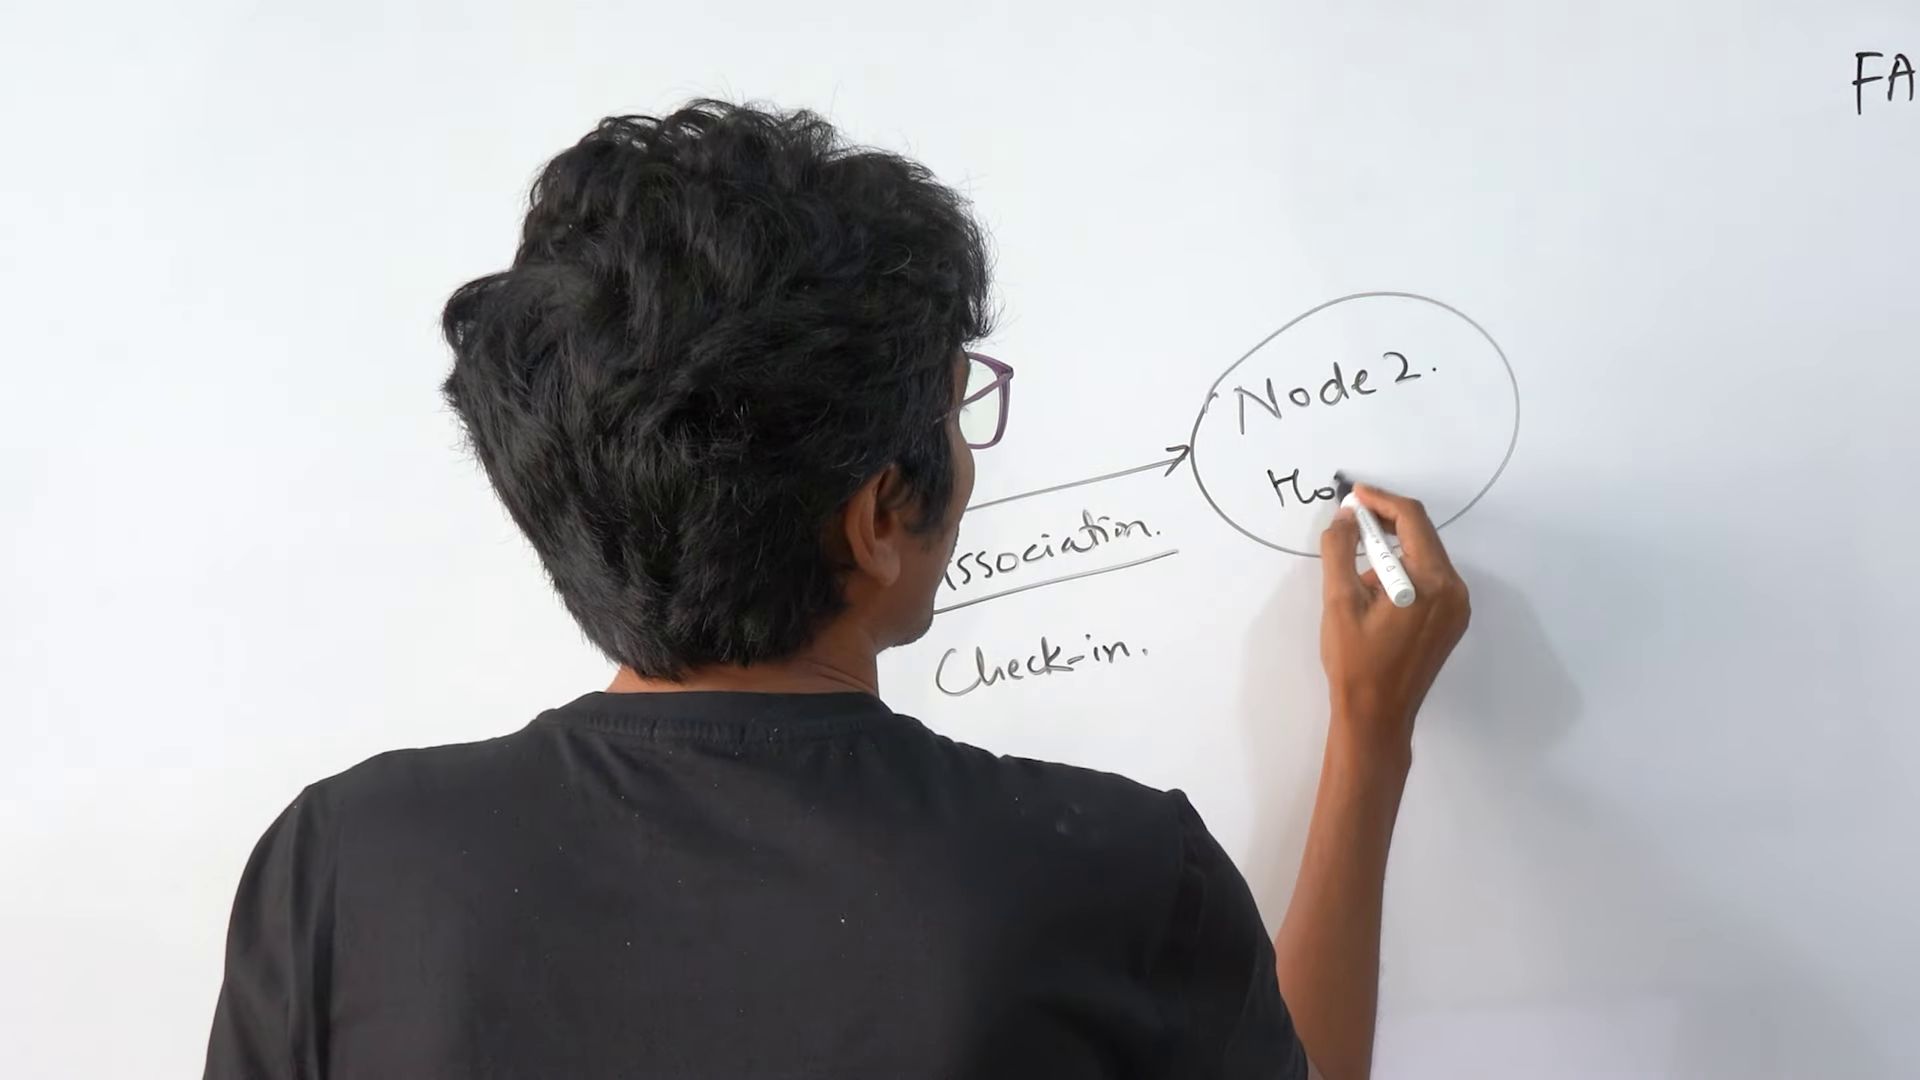 FA
Node 2.
Ho
ssociation.
Check-in.